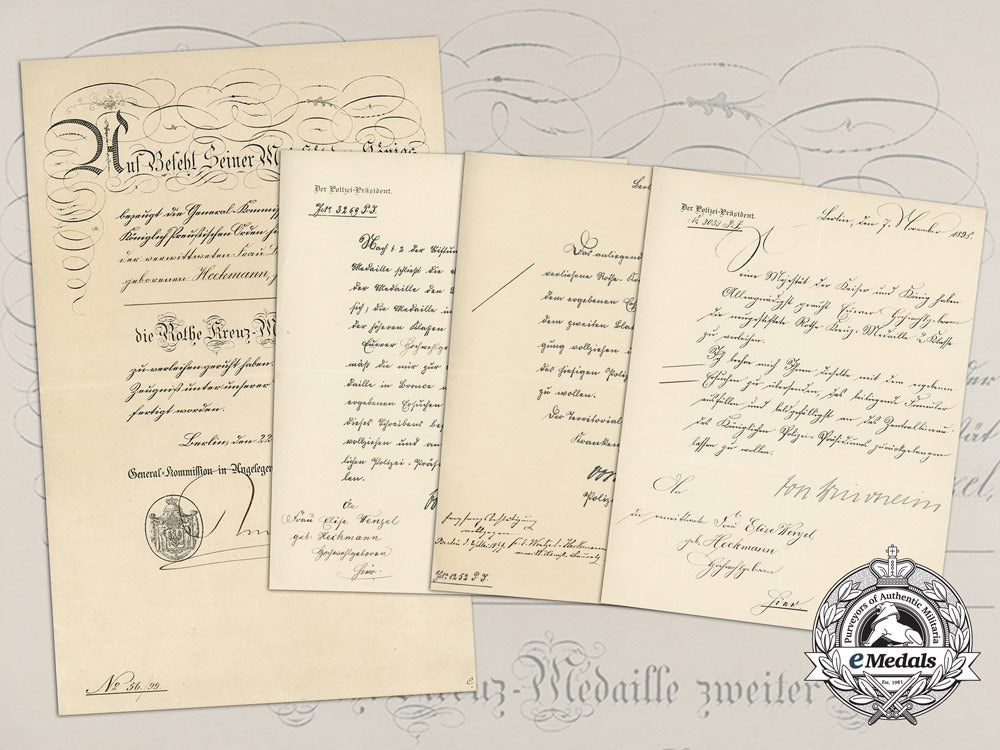 Auf Befehl Seiner
bezeugt die General-Kommiss
Königlich Preußischen Orden
der verwittweten Frau
geborenen Heckmann,
die Rothe Kreuz-M
zu verleihen geruht haben.
Zeugniß unter unserer
fertigt worden.
Berlin, den 22
General-Kommission in Angelege
No 56. 99.
Der Polizei-Präsident.
J.No 3269 P.J.
Nach § 2 der Stiftun
Medaille schließt die
der Medaille den
sich, die Medaille in
der höheren Klassen
Euerer Hochwohlge
mäß die mir zur
daille in Bronce
ergebenen Ersuchen
dieses Schreibens be
vollziehen und an
lichen Polizei-Präsi
len.
An
Frau Elise Wenzel
geb. Heckmann
Hochwohlgeboren
Hier.
Berl
Das anliegen
verliehene Rothe Kr
dem ergebenen Ers
dem zweiten Bla
gung vollziehen
des hiesigen Poliz
zu wollen.
Der Territorial
Kranken
von
Poliz
J.No 1252 P.J.
Der Polizei-Präsident.
No 3038 P.J.
Berlin, den 7. November 1898.
Seine Majestät der Kaiser und König haben
Allergnädigst geruht Euerer Hochwohlgeboren
die neugestiftete Rothe Kreuz-Medaille 2. Klasse
zu verleihen.
Ich beehre mich Ihnen dieselbe mit dem ergebenen
Ersuchen zu übersenden, das beiliegende Formular
ausfüllen und baldgefälligst an das Zentralbureau
des Königlichen Polizei-Präsidiums zurückgelangen
lassen zu wollen.
An
die verwittwete Frau Elise Wenzel
geb. Heckmann
Hochwohlgeboren
Hier
Kreuz-Medaille zweiter
Purveyors of Authentic Militaria
eMedals
Est. 1981